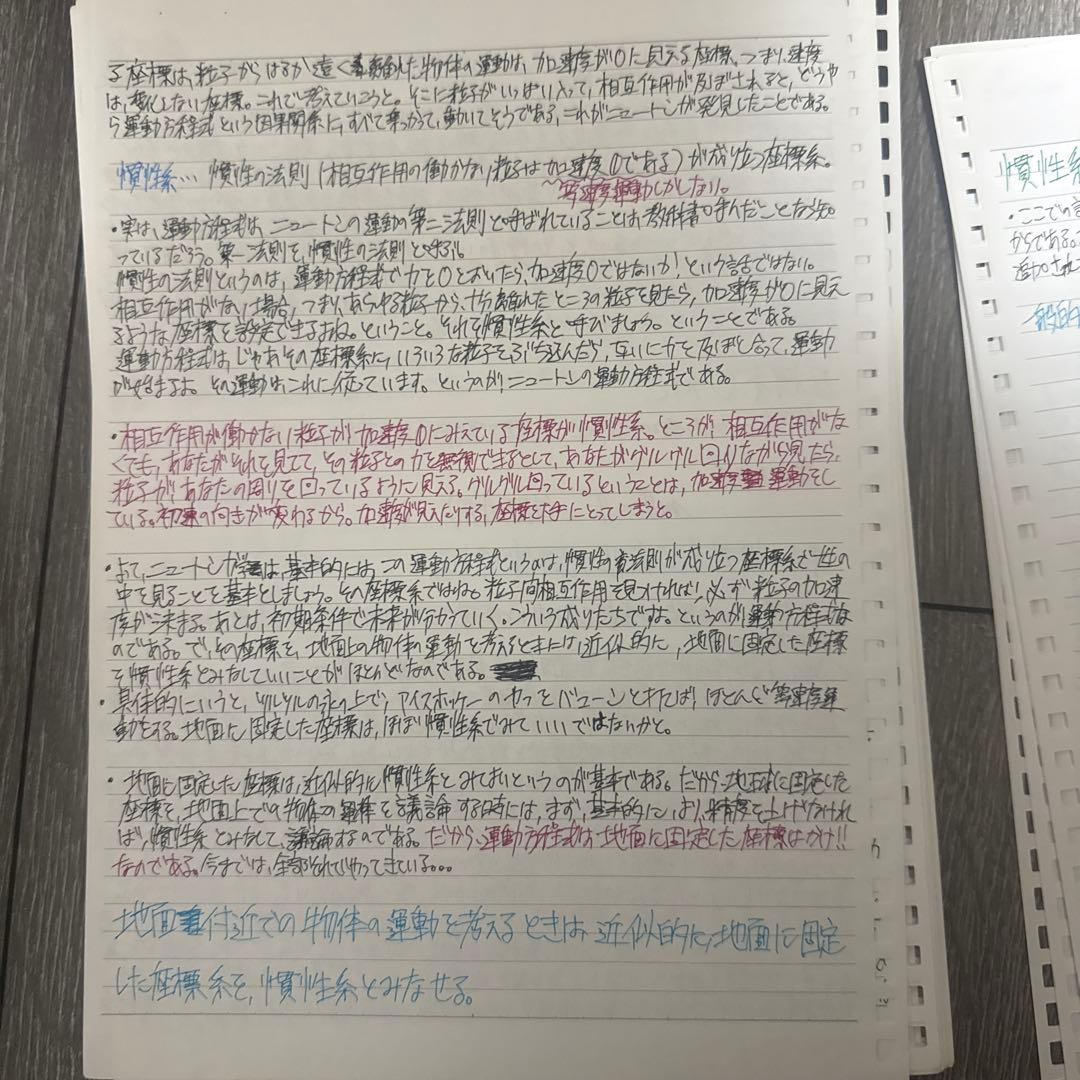 る座標は、粒子からはるか遠く離れた物体の運動は、加速度が0に見える座標、つまり、速度
は、変化しない座標。これで考えていこうと。そこに粒子がいっぱい入って、相互作用が及ぼされると、どうや
ら運動方程式という因果関係に、すべて乗っかって、動いてそうである、これがニュートンが発見したことである。
慣性系… 慣性の法則(相互作用の働かない粒子は加速度0である)が成り立つ座標系。
等速度運動しかしない。
・実は、運動方程式は、ニュートンの運動の第二法則と呼ばれていることは、教科書で呼んだことなら知
っているだろう。第一法則を、慣性の法則と呼ぶ。
慣性の法則というのは、運動方程式で力を0とおいたら、加速度0ではないか!という話ではない。
相互作用がない場合、つまり、あらゆる粒子から、十分離れたところの粒子を見たら、加速度が0に見え
るような座標を設定できるよね。ということ。それを慣性系と呼びましょう。ということである。
運動方程式は、じゃあその座標系に、いろいろな粒子をぶち込んだら、互いに力を及ぼし合って、運動
が始まるよ。その運動はこれに従っています。というのが、ニュートンの運動方程式である。
・相互作用が働かない粒子が加速度0にみえている座標が慣性系。ところが、相互作用がな
くても、あなたがそれを見てて、その粒子との力を無視できるとして、あなたがグルグル回りながら見たら、
粒子が、あなたの周りを回っているように見える。グルグル回っているということは、加速度運動をし
ている。初速の向きが変わるから。加速度が見えたりする、座標を下手にとってしまうと。
・よって、ニュートンが は、基本的には、この運動方程式というのは、慣性の法則が成り立つ座標系で世の
中を見ることを基本としましょう。その座標系ではね。粒子間相互作用を見つければ!必ず粒子の加速
度が決まる。あとは、初期条件で未来が分かっていく。こういう成りたちですよ。というのが運動方程式な
のである。で、その座標を、地面上の物体の運動を考えるときには近似的に、地面に固定した座標
を慣性系とみなしていいことがほとんどなのである。
・具体的にいうと、ツルツルの氷の上で、アイスホッケーのやつをバューンとすれば、ほとんど等速度運
動をする。地面に固定した座標は、ほぼ慣性系でみていいいではないかと。
・地面に固定した座標は、近似的に慣性系とみてよいというのが基本である。だから、地球に固定した
座標を、地面上での物体の運動を議論する時には、まず、基本的に、より、精度を上げなければ
ば、慣性系とみなして、議論するのである。だから、運動方程式は、地面に固定した座標はかけ!!
なのである。今までは、全部それでやってきている。。。
地面付近での物体の運動を考えるときは、近似的に、地面に固定
した座標系を、慣性系とみなせる。
慣性系
・ここでの
からである。
追加され
一般的